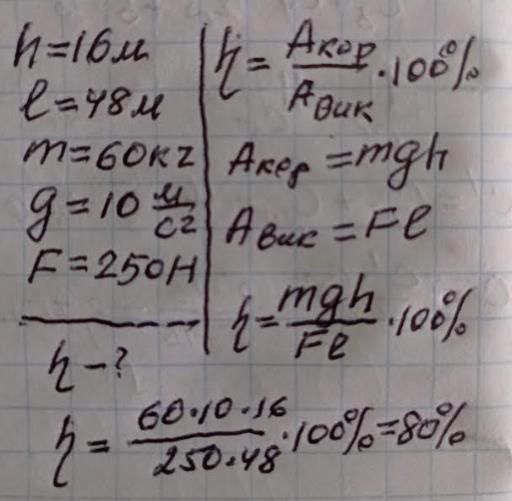 h=16м
l=48м
m=60кг
g=10 м/с²
F=250Н
η-?
η = Aкор/Aвик · 100%
Aкор = mgh
Aвик = Fl
η = mgh/Fl · 100%
η = 60·10·16/250·48 · 100% = 80%